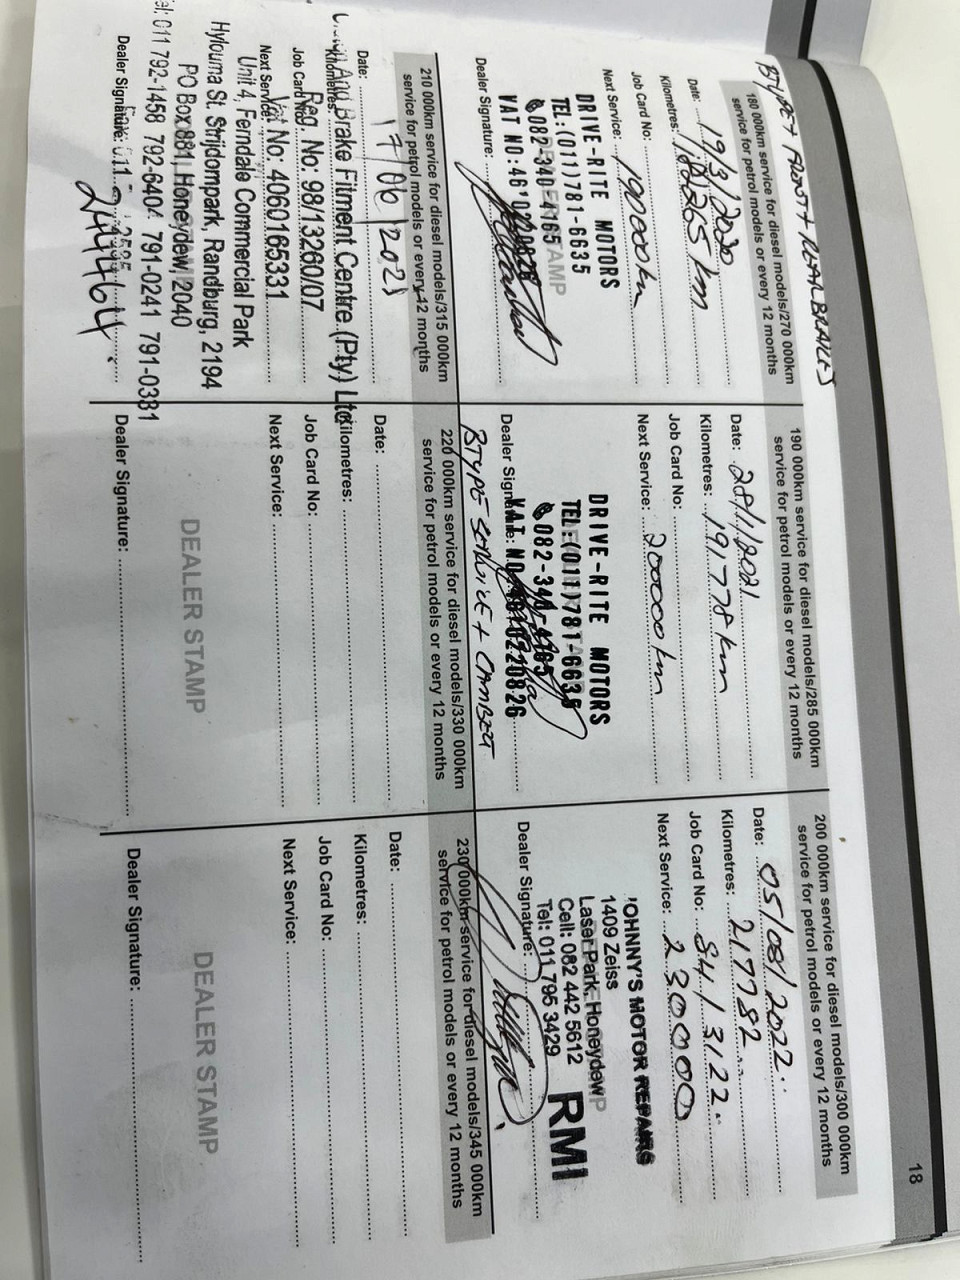 18
BTYPE + FRONT + REAR BRAKES
180 000km service for diesel models/270 000km
service for petrol models or every 12 months
Date: 19/3/2020
Kilometres: 182265 km
Job Card No:
Next Service: 190000km
DRIVE-RITE MOTORS
TEL:(011)781-6635
082-340-4165
VAT NO:4610220826
Dealer Signature:
190 000km service for diesel models/285 000km
service for petrol models or every 12 months
Date: 28/1/2021
Kilometres: 191778 km
Job Card No:
Next Service: 200000 km
DRIVE-RITE MOTORS
TEL:(011)781-6635
082-340-4165
VAT NO:4610220826
Dealer Signature:
BTYPE SERVICE + CAMBELT
200 000km service for diesel models/300 000km
service for petrol models or every 12 months
Date: 05/08/2022
Kilometres: 217782
Job Card No: S41/3122
Next Service: 230000
JOHNNY'S MOTOR REPAIRS
1409 Zeiss
Laser Park, Honeydew
Cell: 082 442 5612
Tel: 011 795 3429
RMI
Dealer Signature:
210 000km service for diesel models/315 000km
service for petrol models or every 12 months
Date: 17/06/2021
Kilometres:
And Brake Fitment Centre (Pty) Ltd
Job Card No:
Reg. No: 98/13260/07
Next Service:
Vat No: 4060165331
Unit 4, Ferndale Commercial Park
Hylouma St. Strijdompark, Randburg, 2194
PO Box 881, Honeydew, 2040
Tel: 011 792-1458 792-6404 791-0241 791-0381
Dealer Signature:
244464
220 000km service for diesel models/330 000km
service for petrol models or every 12 months
Date:
Kilometres:
Job Card No:
Next Service:
DEALER STAMP
Dealer Signature:
230 000km service for diesel models/345 000km
service for petrol models or every 12 months
Date:
Kilometres:
Job Card No:
Next Service:
DEALER STAMP
Dealer Signature: